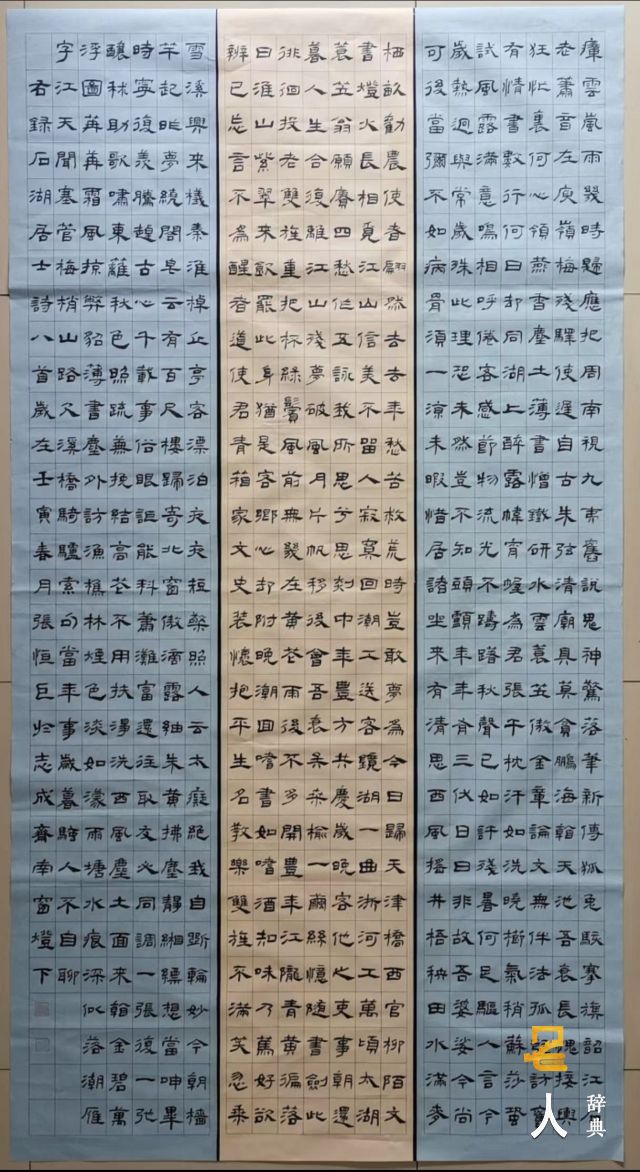 瘴雲嵐雨幾時歸應把周南視九夷舊說鬼神驚落筆新傳狐兔駭搴旗韶江石
老蕭音左庾嶺梅殘驛使遲自古朱弦清廟具莫貪鵬海翰天池吾衰長愧接輿
狂忙裏何心領燕香塵土薄書憎鐵研水雲蓑笠傲金章論文無伴法孤起訪舊
有情書數行何日却同湖上醉露幃宵幄為君張午枕汗如洗曉櫛氣稍蘇莎蛩
試風露滿意鳴相呼倦客感節物流光不躊躇秋聲已如許殘暑何足驅人言今
歲熱迥與常歲殊此理恐未然豈不知頭顱年年有三伏日日非故吾婆娑今尚
可後當彌不如病骨須一涼未暇惜居諸坐來有清思西風摇井梧秧田水滿麥
栖畝勸農使者翩然去去年愁苦救荒時豈敢夢為今日歸天津橋西官柳陌文
書燈火長相覓江山信美不留人寂寞回潮工送客鏡湖一曲浙河工萬頃太湖
蓑笠翁願賡四愁作五詠我所思兮思剡中年豐方共慶歲晚客他之吏事朝還
暮人生合復離江山殘夢破風月片帆移後會吾衰矣桑榆一繭絲憶隨書劍此
徘徊投老雙旌重把杯綠鬢風前無幾在黃花雨後不多開豐年江隴青黃遍落
日淮山紫翠來飲罷此身猶是客鄉心却附晚潮回嗜書如嗜酒知味乃篤好欲
辨已忘言不為醒者道使君青箱家文史裝懷抱平生名教樂雙旌不滿笑忽乘
雪溪興來樣秦淮棹丘亭客漂泊夜夜桑照人云太癡絕我自斵輪妙今朝檣
芊起昨夢繞閶皂云有百尺樓歸寄北窗傲滴露紬朱黃拂塵靜緗縹想當呻畢
時寧復羨騰趠古心千載事俗眼詎能科蕭灘富還往取友必同調一張復一弛
釀秫助歌嘯東籬秋色照疏蕪挽結高花不用扶淨洗西風塵土面來翰金碧萬
浮圖苒苒霜風掠弊貂溥書塵外訪漁樵林煙色淡如濛雨塘水痕深似落潮雁
字江天聞塞管梅梢山路欠溪橋騎驢索句當年事歲暮騂人不自聊
右録石湖居士詩八首歲在壬寅春月張恒巨於志成齋南窗燈下
名人辞典